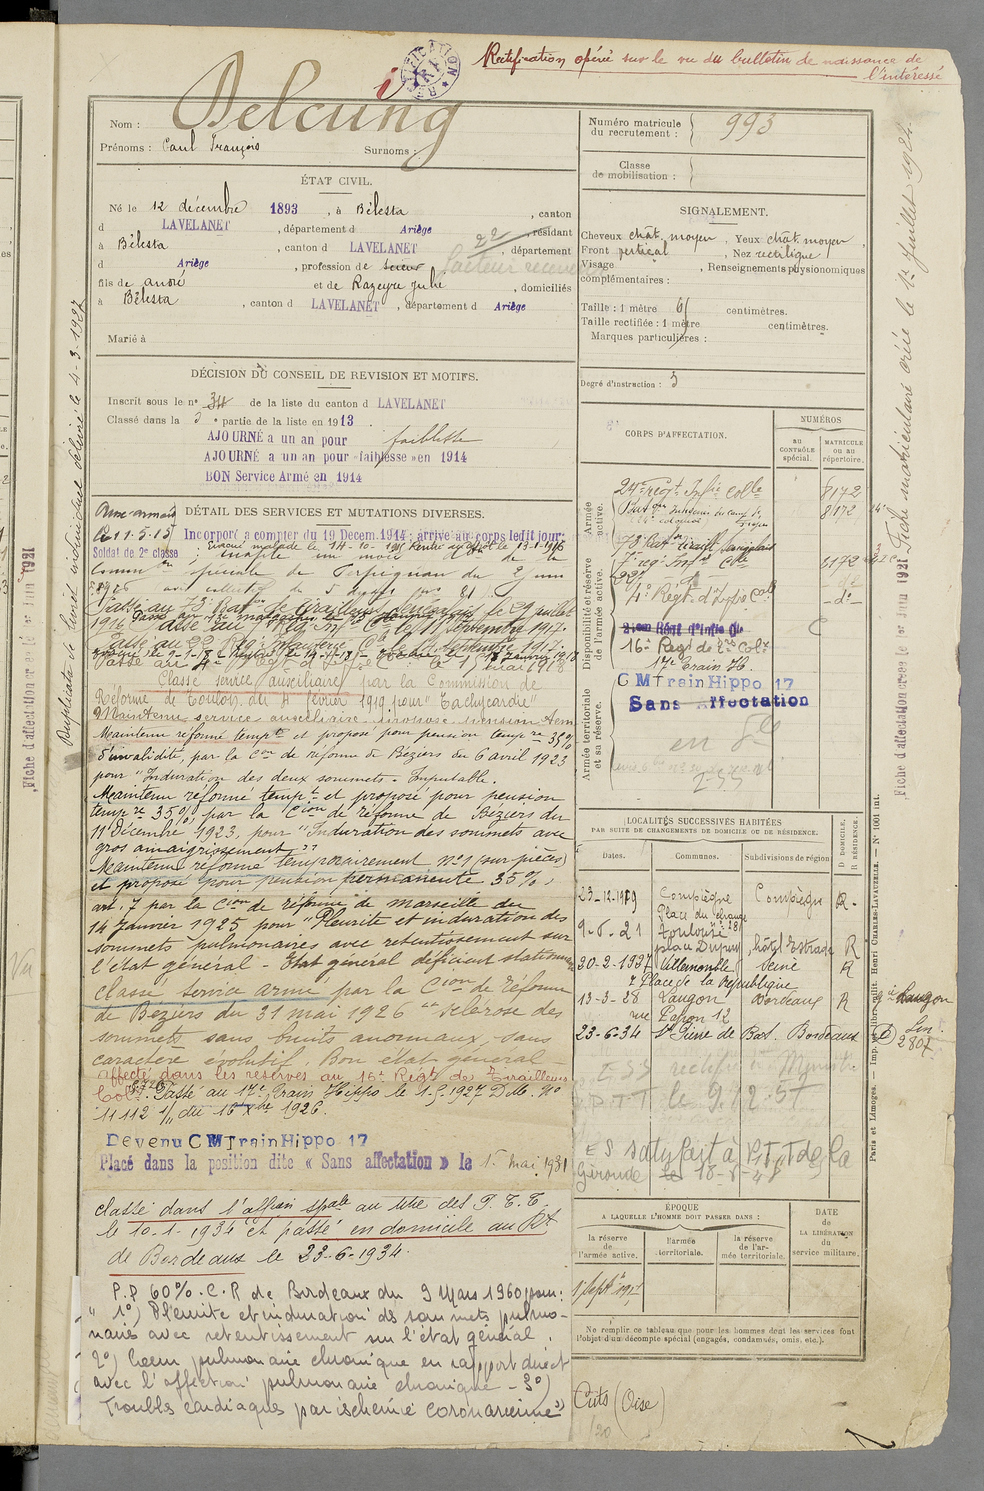 Rectification opérée sur le vu du bulletin de naissance de
l'intéressé
RECTIFICATION
i
Nom : Delcung
Prénoms : Paul François Surnoms :
ÉTAT CIVIL.
Né le 12 décembre 1893, à Bélesta, canton
d LAVELANET, département d Ariège, résidant
à Bélesta, canton d LAVELANET, département
d Ariège, profession de facteur receveur
fils de André et de Razeyre Julie, domiciliés
à Bélesta, canton d LAVELANET, département d Ariège
Marié à
DÉCISION DU CONSEIL DE REVISION ET MOTIFS.
Inscrit sous le n° 34 de la liste du canton d LAVELANET
Classé dans la 5e partie de la liste en 1913.
AJOURNÉ a un an pour faiblesse
AJOURNÉ a un an pour «faiblesse» en 1914
BON Service Armé en 1914
DÉTAIL DES SERVICES ET MUTATIONS DIVERSES.
Incorporé a compter du 19 Decem. 1914; arrivé au corps ledit jour;
Le 11.5.15
Soldat de 2e classe
évacué malade le 14-10-1915 Rentré au dépôt le 13-1-1916
spéciale de Perpignan du 2 juin
Passé au 73e Baton de Tirailleurs Sénégalais le 29 juillet
1916
le 11 Septembre 1917.
Passé au 4e Régt d'Infie Cle le 1er mai 1918
Classé service auxiliaire par la Commission de
Réforme de Toulon du 4 février 1919 pour "Tachycardie"
Maintenu service auxiliaire. Proposé pension tem
Maintenu réformé tempt et proposé pour pension tempre 35%
d'invalidité, par la Con de réforme de Béziers du 6 avril 1923
pour "Induration des deux sommets - Imputable.
Maintenu réformé tempt et proposé pour pension
tempre 35% par la Cion de réforme de Béziers du
11 Décembre 1923, pour "Induration des sommets avec
gros amaigrissement"
Maintenu réformé temporairement n°1 (sur pièces)
et proposé pour pension permanente 35%
art. 7 par la Cion de réforme de Marseille du
14 Janvier 1925 pour "Pleurite et induration des
sommets pulmonaires avec retentissement sur
l'état général - Etat général déficient stationnaire
classé service armé par la Cion de Réforme
de Béziers du 31 mai 1926 "Sclérose des
sommets sans bruits anormaux, sans
caractère évolutif. Bon état général -
affecté dans les réserves au 16e Régt de Tirailleurs
Col. Passé au 17e Train Hippo le 1.5.1927 D.M. N°
11112 1/1 du 16 Xbre 1926.
Devenu C M Train Hippo 17
Placé dans la position dite « Sans affectation » le 15 mai 1931
classé dans l'affon spale au titre des P.T.T.
le 10.1.1934 et passé en domicile au Rt
de Bordeaux le 23-6-1934.
P.P 60%. C.R de Bordeaux du 9 Mars 1960 pour:
" 1°) Pleurite et induration des sommets pulmo-
naires avec retentissement sur l'état général.
2°) Coeur pulmonaire chronique en rapport direct
avec l'affection pulmonaire chronique - 3°)
Troubles cardiaques par ischémie coronarienne"
Numéro matricule
du recrutement : 993
Classe
de mobilisation :
SIGNALEMENT.
Cheveux chât. moyen, Yeux chât. moyen,
Front vertical, Nez rectiligne,
Visage , Renseignements physionomiques
complémentaires :
Taille : 1 mètre 61 centimètres.
Taille rectifiée : 1 mètre centimètres.
Marques particulières :
Degré d'instruction : 3
CORPS D'AFFECTATION.
NUMÉROS
AU CONTRÔLE spécial.
MATRICULE OU AU répertoire.
Armée active.
24e Régt Infie Colle 8172
8172
73e Baton Tiraill. Sénégalais
7e régt Infie Cle 8172
Disponibilité et réserve de l'armée active.
4e Régt d'Infie Cole -d-
21ème Régt d'Infie Cle
16e Régt de Col.
17e Train H.
C M Train Hippo 17
Sans Affectation
Armée territoriale et sa réserve.
LOCALITÉS SUCCESSIVES HABITÉES
PAR SUITE DE CHANGEMENTS DE DOMICILE OU DE RÉSIDENCE.
Dates. Communes. Subdivisions de région. D DOMICILE. R RÉSIDENCE.
23-12-1919 Compiègne Compiègne R.
Place du change
9-6-21 Toulouse
place Dupuy, hôtel Estrade R
20-2-1927 Villemomble Seine R
7 Place de la République
13-3-28 Langon Bordeaux R
rue Papon 12
23-6-34 St Pierre de Bat. Bordeaux D
P.T.T le 9.12.57
ES satisfait à P.T.T de la
Gironde le 18-6-48
ÉPOQUE
A LAQUELLE L'HOMME DOIT PASSER DANS :
la réserve de l'armée active. l'armée territoriale. la réserve de l'armée territoriale.
DATE de LA LIBÉRATION du service militaire.
Ne remplir ce tableau que pour les hommes dont les services font
l'objet d'un décompte spécial (engagés, condamnés, omis, etc.).
Cuts (Oise)
/20
Duplicata de livret individuel délivré le 4-3-1927
Fiche d'affectation créée le 1er Juin 1921
Fiche matriculaire créée le 1er Juillet 1924.
Fiche d'affectation créée le 1er Juin 1921
Paris et Limoges. — Imp. et libr. milit. Henri CHARLES-LAVAUZELLE. — N° 1001 int.
Vu